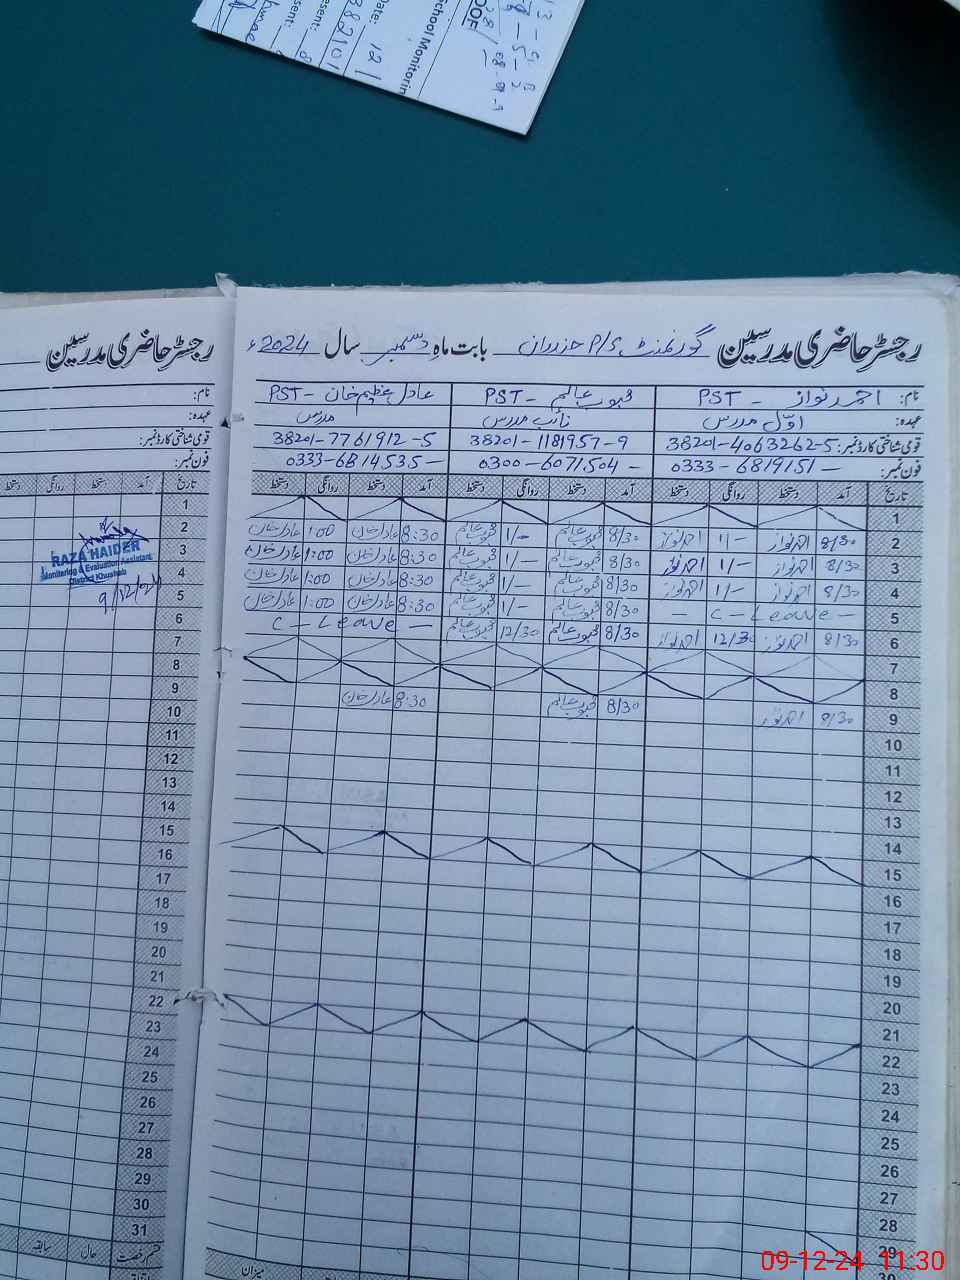 School Monitorin
Date: 12
رجسٹر حاضری مدرسین گورنمنٹ P/S بابت ماہ دسمبر سال 2024ء
نام: احمد نواز - PST محبوب عالم - PST عادل عظیم خان - PST
عہدہ: اوّل مدرس نائب مدرس مدرس
قومی شناختی کارڈ نمبر: 38201-4063262-5 38201-1181957-9 38201-7761912-5
فون نمبر: 0333-6819151 - 0300-6071504 - 0333-6814535 -
تاریخ آمد دستخط روانگی دستخط آمد دستخط روانگی دستخط آمد دستخط روانگی دستخط
1
2 8/30 احمد نواز 1/- احمد نواز 8/30 محبوب عالم 1/- محبوب عالم 8:30 عادل خان 1:00 عادل خان
3 8/30 احمد نواز 1/- احمد نواز 8/30 محبوب عالم 1/- محبوب عالم 8:30 عادل خان 1:00 عادل خان
4 8/30 احمد نواز 1/- احمد نواز 8/30 محبوب عالم 1/- محبوب عالم 8:30 عادل خان 1:00 عادل خان
5 - C - Leave - 8/30 محبوب عالم 1/- محبوب عالم 8:30 عادل خان 1:00 عادل خان
6 8/30 احمد نواز 12/30 احمد نواز 8/30 محبوب عالم 12/30 محبوب عالم C - Leave -
7
8
9 8/30 احمد نواز 8/30 محبوب عالم 8:30 عادل خان
10
11
12
13
14
15
16
17
18
19
20
21
22
23
24
25
26
27
28
29
میزان
رجسٹر حاضری مدرسین
نام:
عہدہ:
قومی شناختی کارڈ نمبر:
فون نمبر:
تاریخ آمد دستخط روانگی دستخط
1
2
3
4
5
6
7
8
9
10
11
12
13
14
15
16
17
18
19
20
21
22
23
24
25
26
27
28
29
30
31
قسم رخصت حال سابقہ
RAZA HAIDER
Monitoring & Evaluation Assistant
District Khushab
9/12/024
09-12-24 11:30